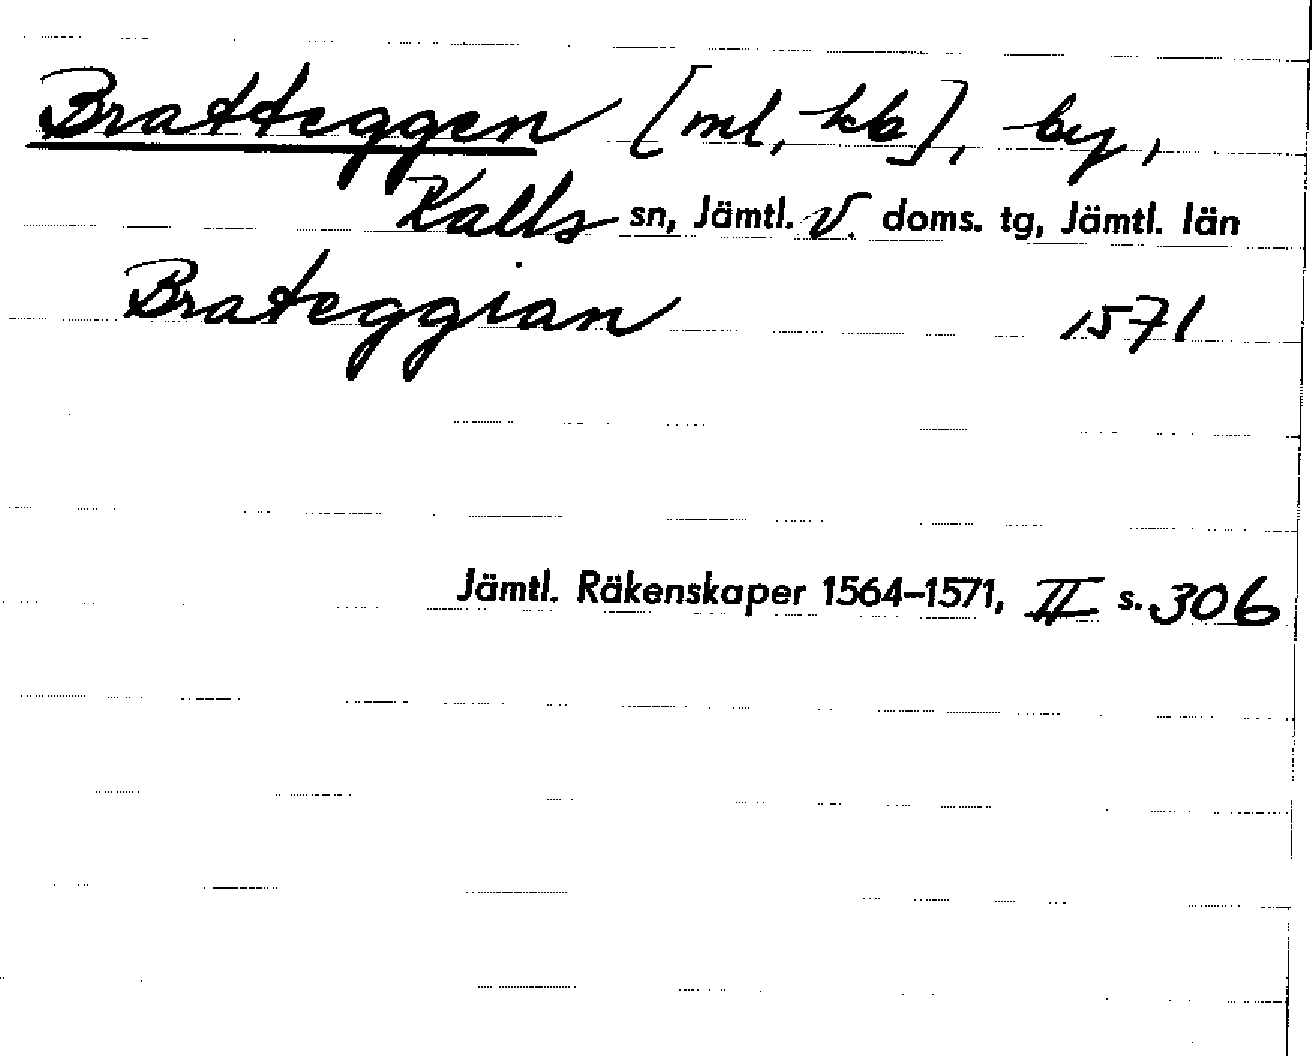 Bratteggen [ml, kb], by,
Kalls sn, Jämtl. V. doms. tg, Jämtl. län
Brateggian 1571
Jämtl. Räkenskaper 1564–1571, II s. 306